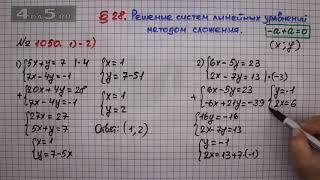 4 5.ru
§ 28. Решение систем линейных уравнений
методом сложения.
-a+a=0
(x; y)
№ 1050. 1)-2)
1) 5x+y=7 | ·4
7x-4y=-1
+ 20x+4y=28
7x-4y=-1
27x=27
5x+y=7
x=1
y=7-5x
x=1
y=7-5·1
x=1
y=2
Ответ: (1, 2)
2) 6x-5y=23
2x-7y=13 | ·(-3)
+ 6x-5y=23
-6x+21y=-39
16y=-16
2x-7y=13
y=-1
2x=13+7·(-1)
y=-1
2x=6